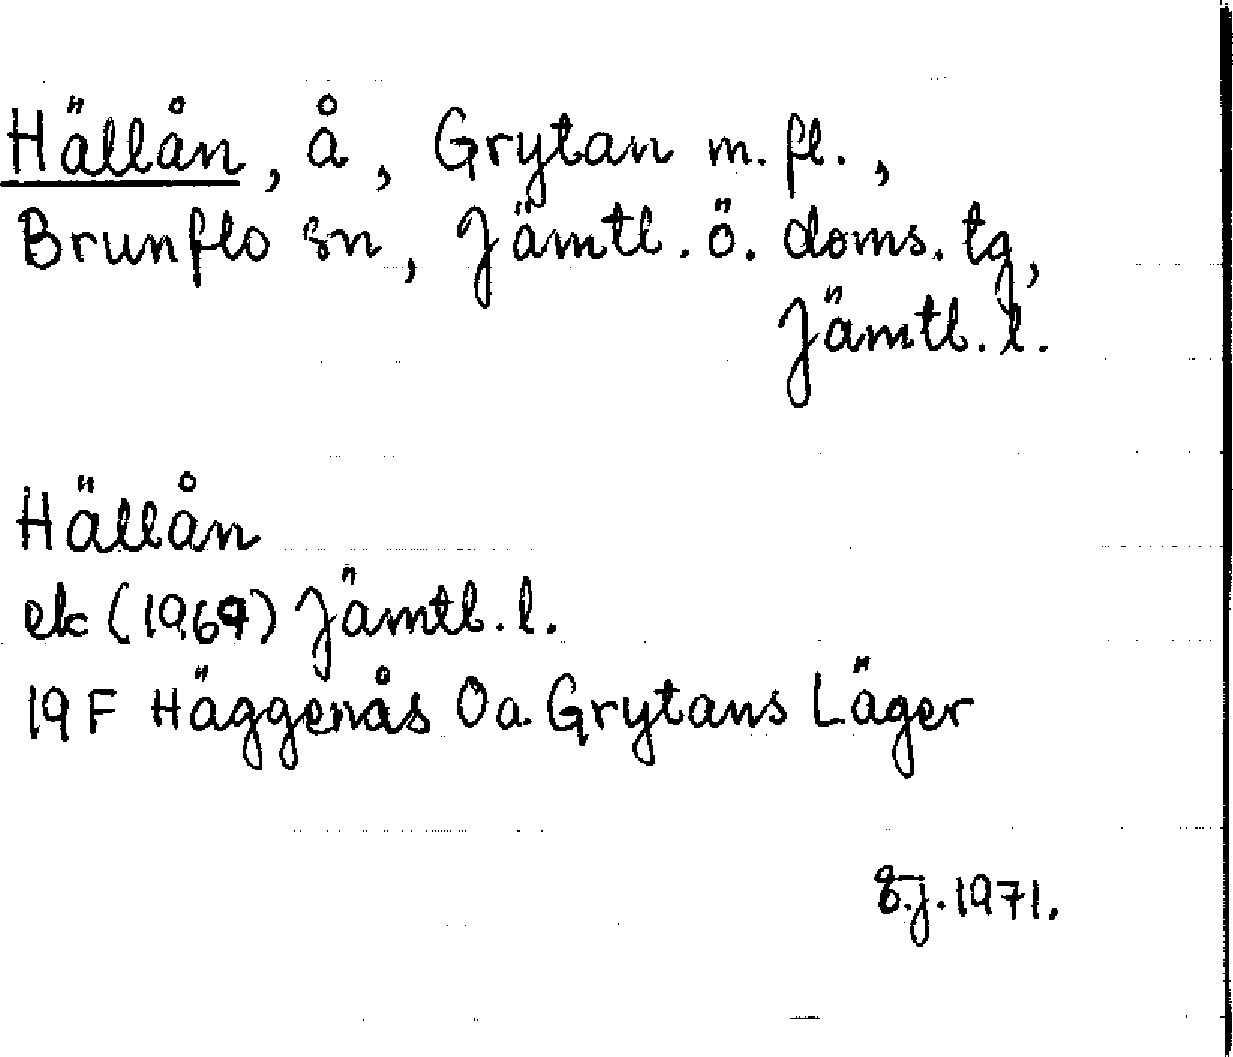 Hällån, å, Grytan m.fl.,
Brunflo sn, Jämtl. ö. doms. tg,
Jämtl. l.
Hällån
ek (1969) Jämtl. l.
19 F Häggenås Oa Grytans Läger
1971.